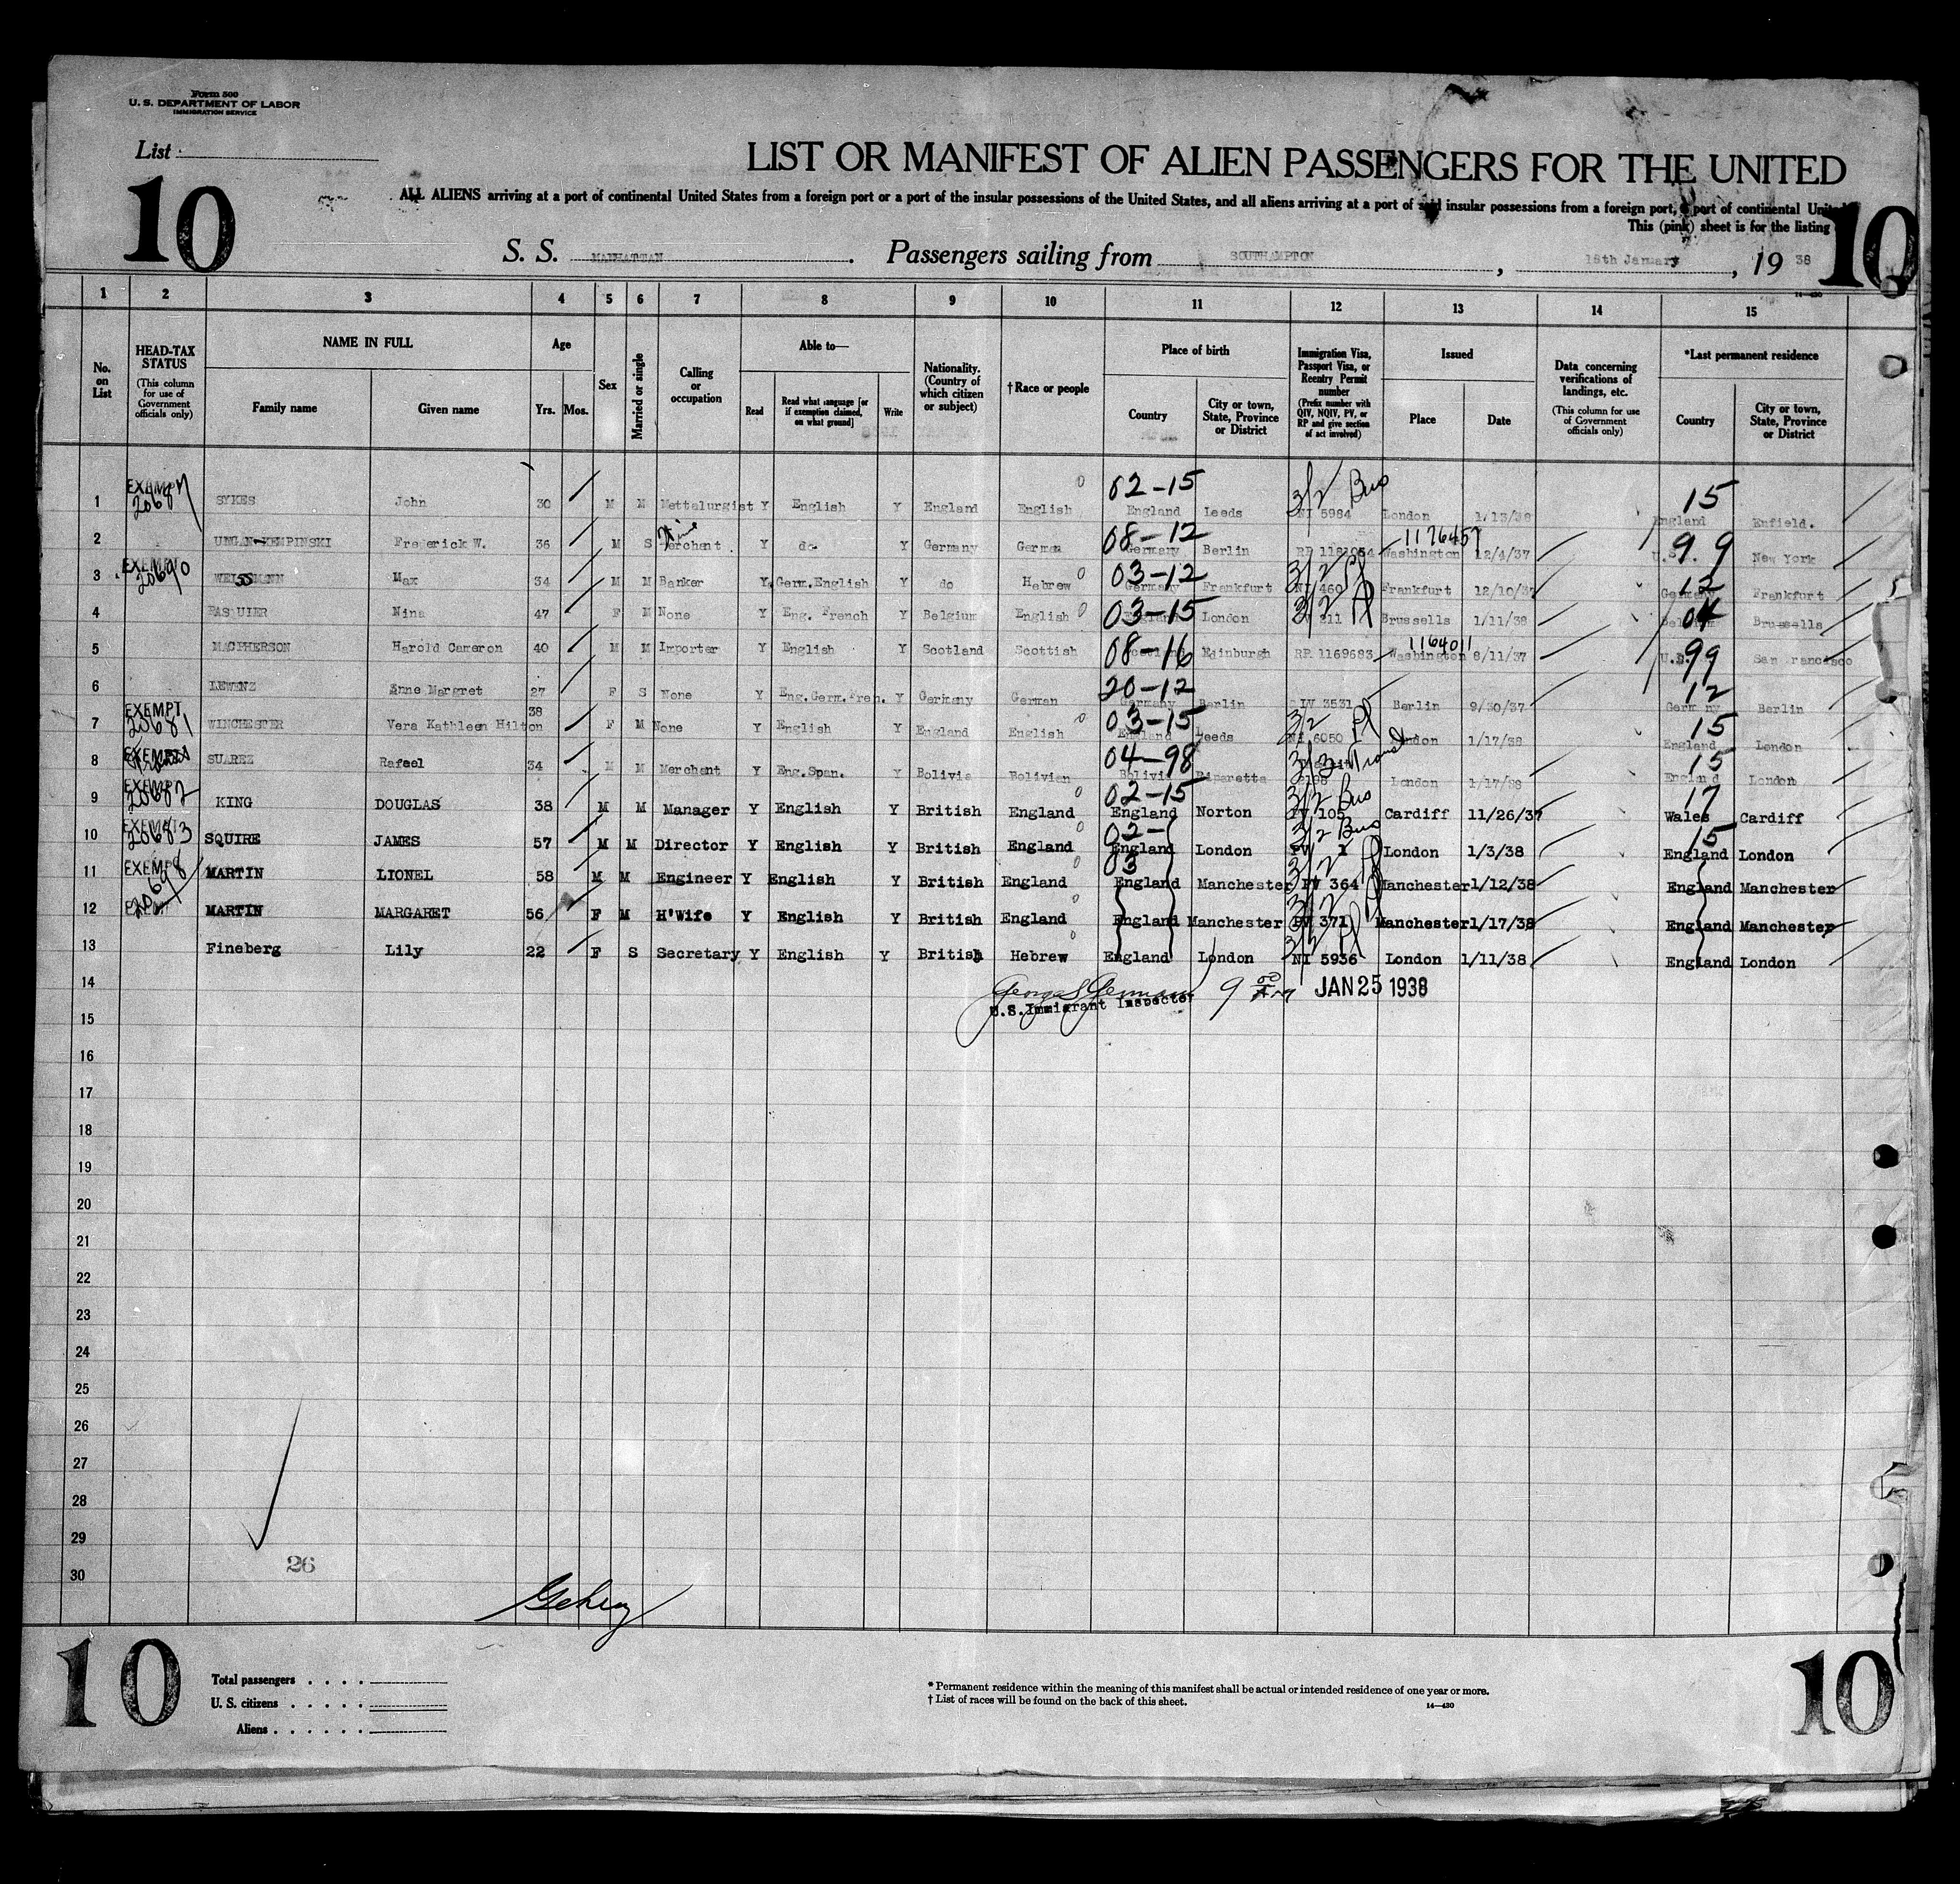 Form 500
U. S. DEPARTMENT OF LABOR
IMMIGRATION SERVICE
List
LIST OR MANIFEST OF ALIEN PASSENGERS FOR THE UNITED
10
ALL ALIENS arriving at a port of continental United States from a foreign port or a port of the insular possessions of the United States, and all aliens arriving at a port of said insular possessions from a foreign port, a port of continental
This (pink) sheet is for the listing
10
S. S. MANHATTAN. Passengers sailing from SOUTHAMPTON, January, 19 38
1 2 3 4 5 6 7 8 9 10 11 12 13 14 15
No. on List
HEAD-TAX STATUS
(This column for use of Government officials only)
NAME IN FULL
Family name
Given name
Age
Yrs. Mos.
Sex
Married or single
Calling or occupation
Able to—
Read
Read what language [or if exemption claimed, on what ground]
Write
Nationality. (Country of which citizen or subject)
†Race or people
Place of birth
Country
City or town, State, Province or District
Immigration Visa, Passport Visa, or Reentry Permit number
(Prefix number with QIV, NQIV, PV, or RP and give section of act involved)
Issued
Place
Date
Data concerning verifications of landings, etc.
(This column for use of Government officials only)
*Last permanent residence
Country
City or town, State, Province or District
1 EXEMPT SYKES John 30 M M Mettalurgist Y English Y England English 02-15 England Leeds 3/2 Bus NI 5984 London 1/13/38 15 England Enfield.
2 UNGAN-KEMPINSKI Frederick W. 36 M S Wine Merchant Y do Y Germany German 08-12 Germany Berlin RP 1181054 1176457 Washington 12/4/37 99 U.S. New York
3 EXEMPT 20690 WEISSMANN Max 34 M M Banker Y Germ.English Y do Hebrew 03-12 Germany Frankfurt 3/2 Pl NI 460 Frankfurt 12/10/37 12 Germany Frankfurt
4 PASQUIER Nina 47 F M None Y Eng. French Y Belgium English 03-15 England London 3/2 Pl 211 Brussells 1/11/38 04 Belgium Brussells
5 MACPHERSON Harold Cameron 40 M M Importer Y English Y Scotland Scottish 08-16 Scotland Edinburgh RP 1169683 1164011 Washington 8/11/37 99 U.S. San Francisco
6 LEWENZ Anne Margret 27 F S None Y Eng.Germ.Fren. Y Germany German 20-12 Germany Berlin QIV 3531 Berlin 9/30/37 12 Germany Berlin
7 EXEMPT 20681 WINCHESTER Vera Kathleen Hilton 38 F M None Y English Y England English 03-15 England Leeds 3/2 Pl NI 6050 London 1/17/38 15 England London
8 EXEMPT SUAREZ Rafael 34 M M Merchant Y Eng.Span. Y Bolivia Bolivian 04-98 Bolivia 3/3 London 1/17/38 15 England London
9 EXEMPT 20682 KING DOUGLAS 38 M M Manager Y English Y British England 02-15 England Norton 3/2 Bus PV 105 Cardiff 11/26/37 17 Wales Cardiff
10 EXEMPT 20683 SQUIRE JAMES 57 M M Director Y English Y British England 02- England London 3/2 Bus PV 1 London 1/3/38 15 England London
11 EXEMPT MARTIN LIONEL 58 M M Engineer Y English Y British England 03 England Manchester 3/2 Pl PV 364 Manchester 1/12/38 England Manchester
12 MARTIN MARGARET 56 F M H'Wife Y English Y British England England Manchester 3/2 Pl PV 371 Manchester 1/17/38 England Manchester
13 Fineberg Lily 22 F S Secretary Y English Y British Hebrew England London 3/2 Pl NI 5936 London 1/11/38 England London
14 9 00 Am JAN 25 1938
U.S. Immigrant Inspector
15
16
17
18
19
20
21
22
23
24
25
26
27
28
29
26
30
10
Total passengers
U. S. citizens
Aliens
* Permanent residence within the meaning of this manifest shall be actual or intended residence of one year or more.
† List of races will be found on the back of this sheet.
14—430
10